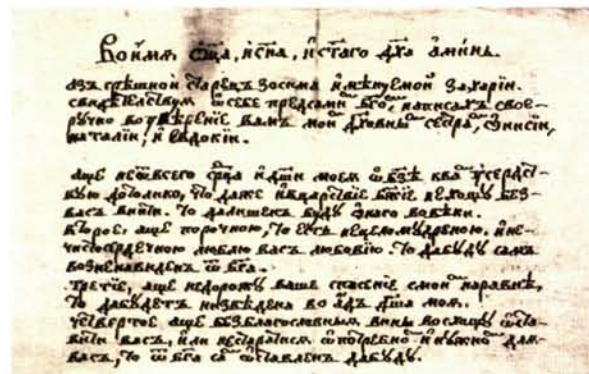 Во имѧ ѻц҃а, и сн҃а, и ст҃аго дх҃а аминь.
азъ грѣшной старецъ Зосима именуемой Захарїи.
свидѣтелствꙋю ѡ себе пред самимъ бг҃омъ, написахъ свое-
рꙋчно во ꙋвѣренїе вамъ мой дх҃овнымъ сестрамъ,
наталїи, и евдокїи.
аще не ѿ всего ср҃дца и дш҃и моеѧ ѡ бз҃ѣ к вамъ ꙋсердст-
вꙋю до толико, что даже и в царствїе бж҃їе не хощꙋ без-
васъ внити. то да лишенъ бꙋдꙋ ѻнаго во вѣки.
Второе: аще порочною, то есть нецеломꙋдреною. и не-
чистосердечною люблю васъ любовїю. то да бꙋдꙋ самъ
возненавиденъ ѿ бг҃а.
третїе, аще не дорожꙋ ваше спасенїе с моимъ наравнѣ,
то да бꙋдетъ низведена во адъ дш҃а моѧ.
четвертое аще без благословныѧ вины восхощꙋ ѡста-
вити васъ, или не старатисѧ ѡ потребномъ и нꙋжномъ длѧ-
васъ, то ѿ бг҃а самъ ѡставленъ да бꙋдꙋ.